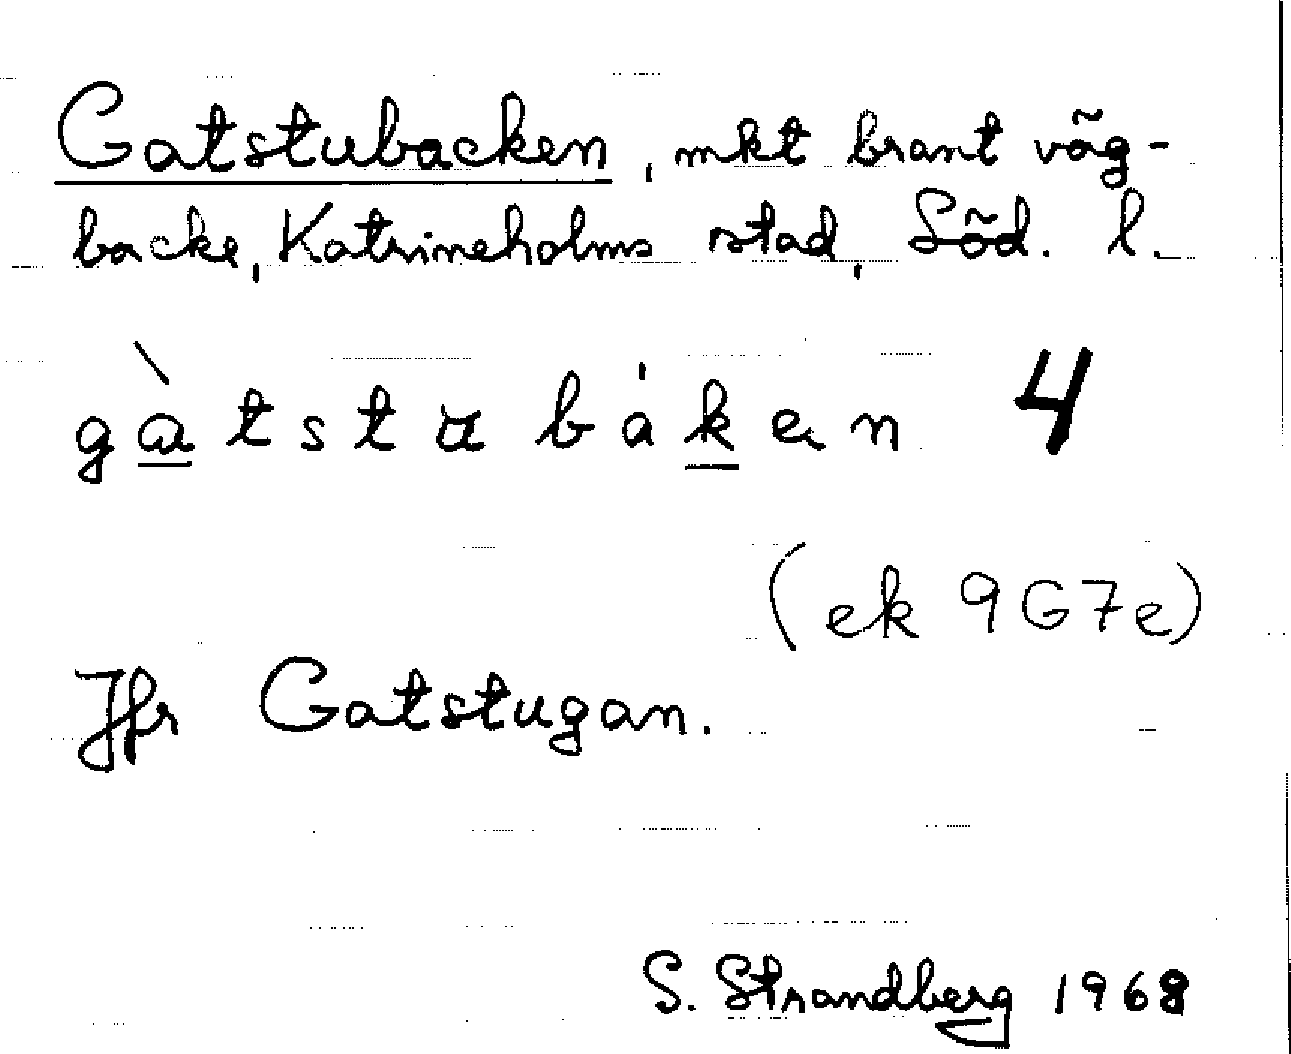 Gatstubacken, mkt brant väg-
backe, Katrineholms stad, Söd. l.
gàtstabáken 4
(ek 9G7e)
Jfr Gatstugan.
S. Strandberg 1968